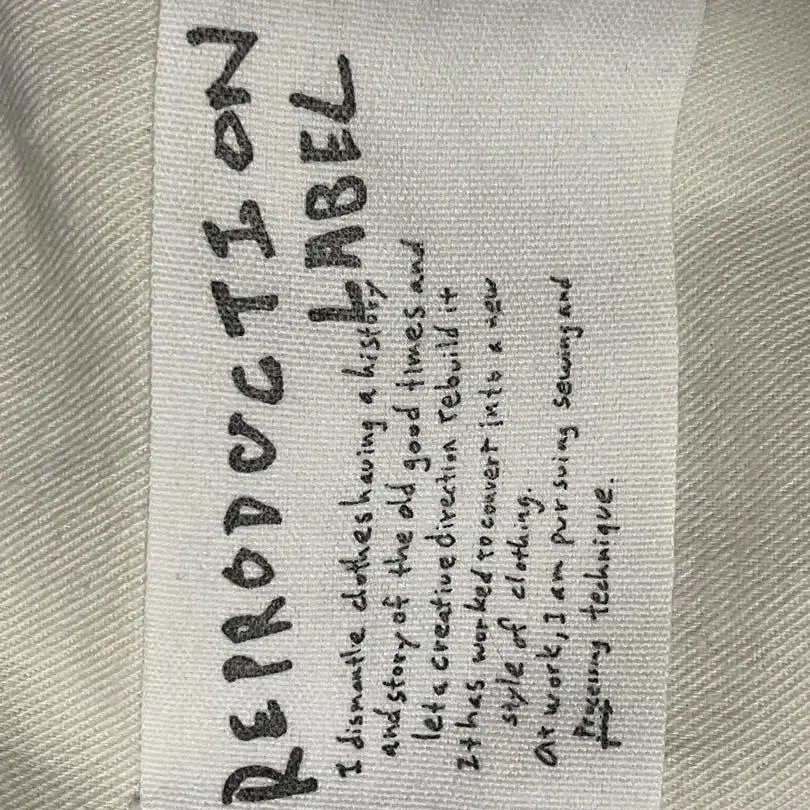 REPRODUCTION
LABEL
I dismantle clothes having a history
and story of the old good times and
let a creative direction rebuild it
It has worked to convert into a new
style of clothing.
at work, I am pursuing sewing and
Processing technique.